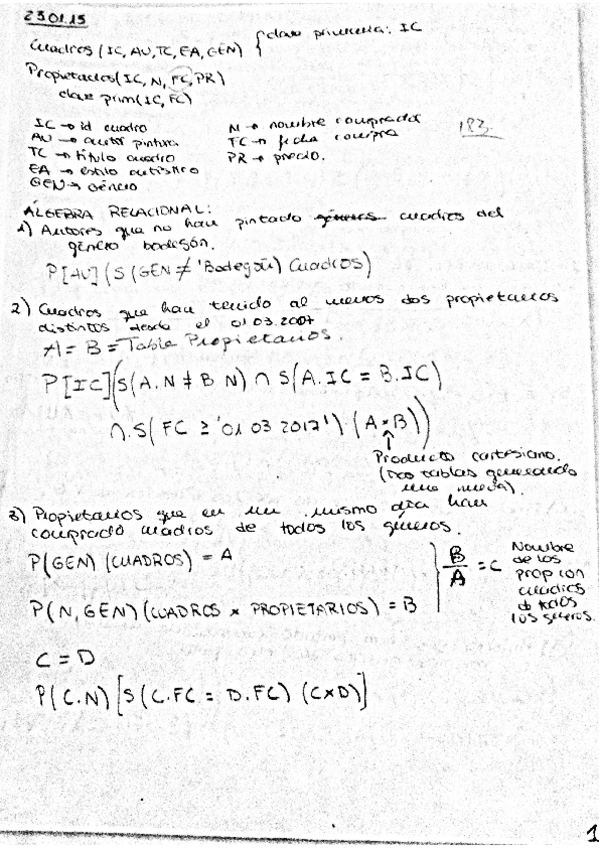 23.01.15
Cuadros (IC, AU, TC, EA, GEN) { clave primaria: IC
Propietarios (IC, N, FC, PR)
clave prim(IC, FC)
IC → id cuadro
AU → autor pintura
TC → título cuadro
EA → estilo artístico
GEN → género
N → nombre comprador
TC → fecha compra
PR → precio.
183
ÁLGEBRA RELACIONAL:
1) Autores que no han pintado géneros cuadros del
género bodegón.
P[AU] (S (GEN ≠ 'Bodegón') Cuadros)
2) Cuadros que han tenido al menos dos propietarios
distintos desde el 01 03.2007
A = B = Tabla Propietarios.
P[IC] (S(A.N ≠ B N) ∩ S(A.IC = B.IC)
∩ S( FC ≥ '01 03 2017') (A × B))
Producto cartesiano.
(Dos tablas generando
una nueva).
3) Propietarios que en un mismo día han
comprado cuadros de todos los géneros.
P(GEN) (CUADROS) = A
P(N, GEN) (CUADROS × PROPIETARIOS) = B
B
A
= C
Nombre
de los
prop con
cuadros
de todos
los géneros.
C = D
P(C.N) [S(C.FC = D.FC) (C×D)]
1